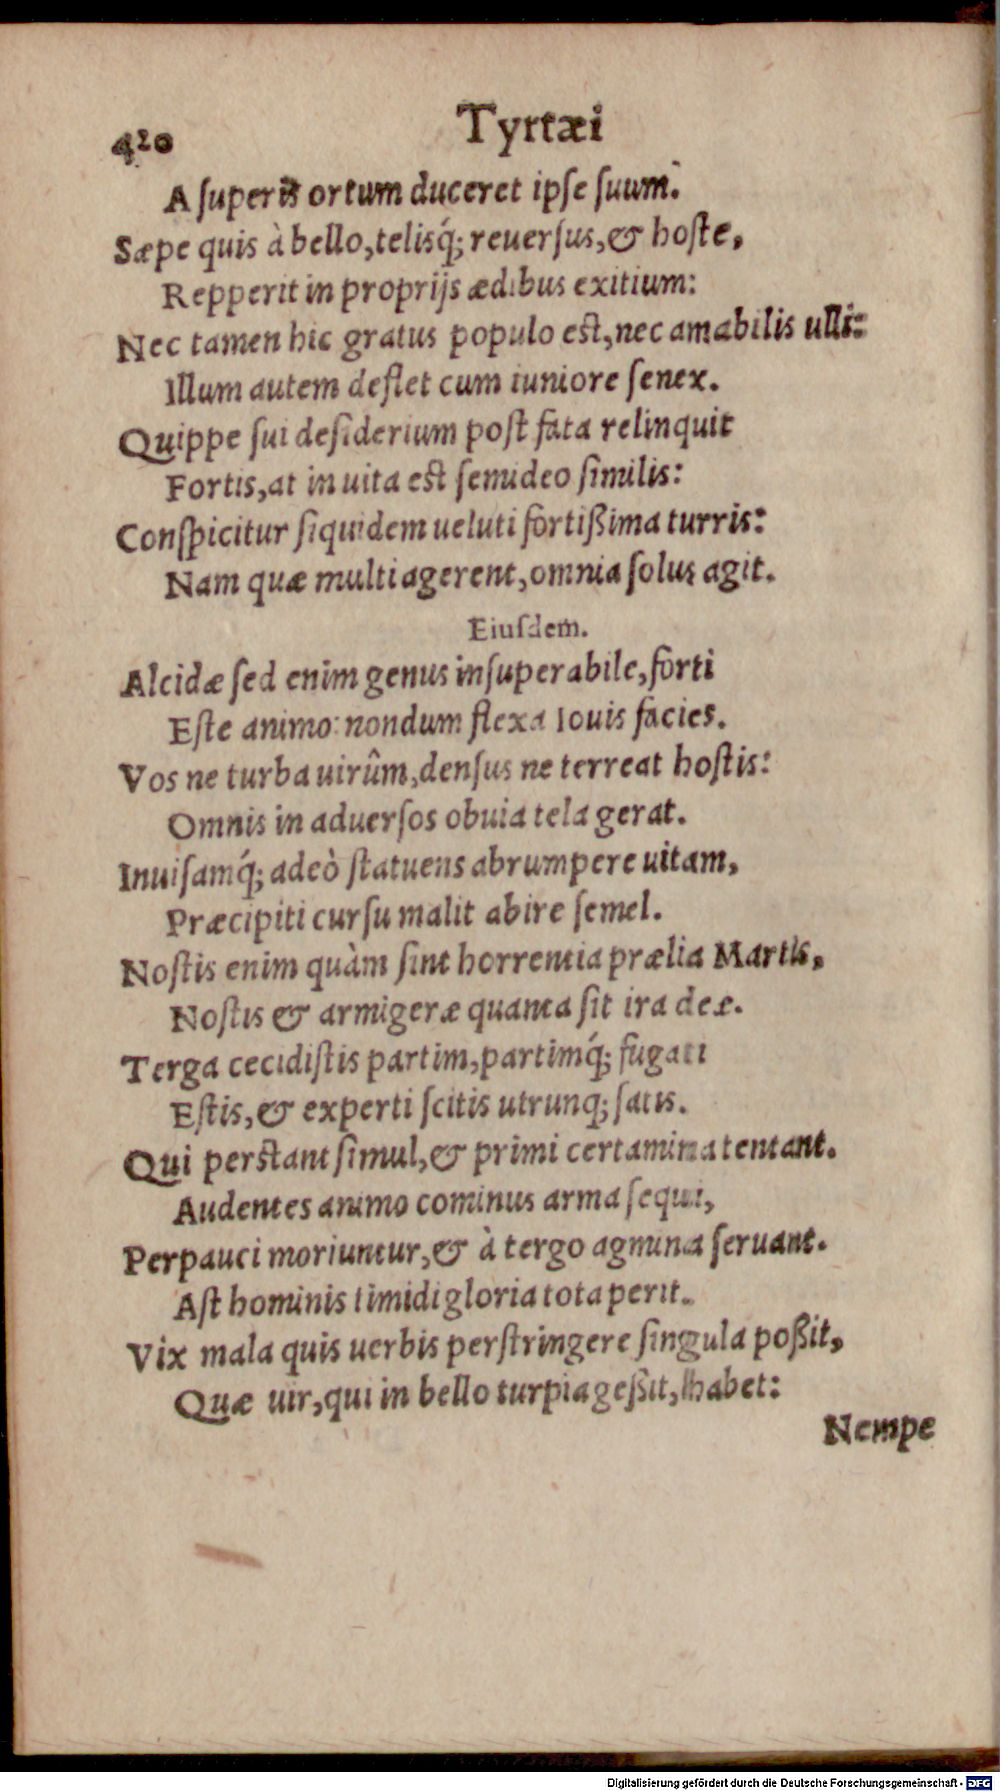 420 Tyrtæi
A ſuperis ortum duceret ipſe ſuum.
Sæpe quis à bello, telisq́; reuerſus, & hoſte,
Repperit in proprijs ædibus exitium:
Nec tamen hic gratus populo est, nec amabilis ulli:
Illum autem deflet cum iuniore ſenex.
Quippe ſui deſiderium poſt fata relinquit
Fortis, at in uita est ſemideo ſimilis:
Conſpicitur ſiquidem ueluti fortißima turris:
Nam quæ multi agerent, omnia ſolus agit.
Eiuſdem.
Alcidæ ſed enim genus inſuperabile, forti
Eſte animo: nondum flexa Iouis facies.
Vos ne turba uirûm, denſus ne terreat hoſtis:
Omnis in aduerſos obuia tela gerat.
Inuiſamq́; adeò ſtatuens abrumpere uitam,
Præcipiti curſu malit abire ſemel.
Noſtis enim quàm ſint horrentia prælia Martis,
Noſtis & armigeræ quanta ſit ira deæ.
Terga cecidiſtis partim, partimq́; fugati
Eſtis, & experti ſcitis utrunq; ſatis.
Qui perstant ſimul, & primi certamina tentant.
Audentes animo cominus arma ſequi,
Perpauci moriuntur, & à tergo agmina ſeruant.
Aſt hominis timidi gloria tota perit.
Vix mala quis uerbis perſtringere ſingula poßit,
Quæ uir, qui in bello turpia geßit, habet:
Nempe
Digitalisierung gefördert durch die Deutsche Forschungsgemeinschaft - DFG